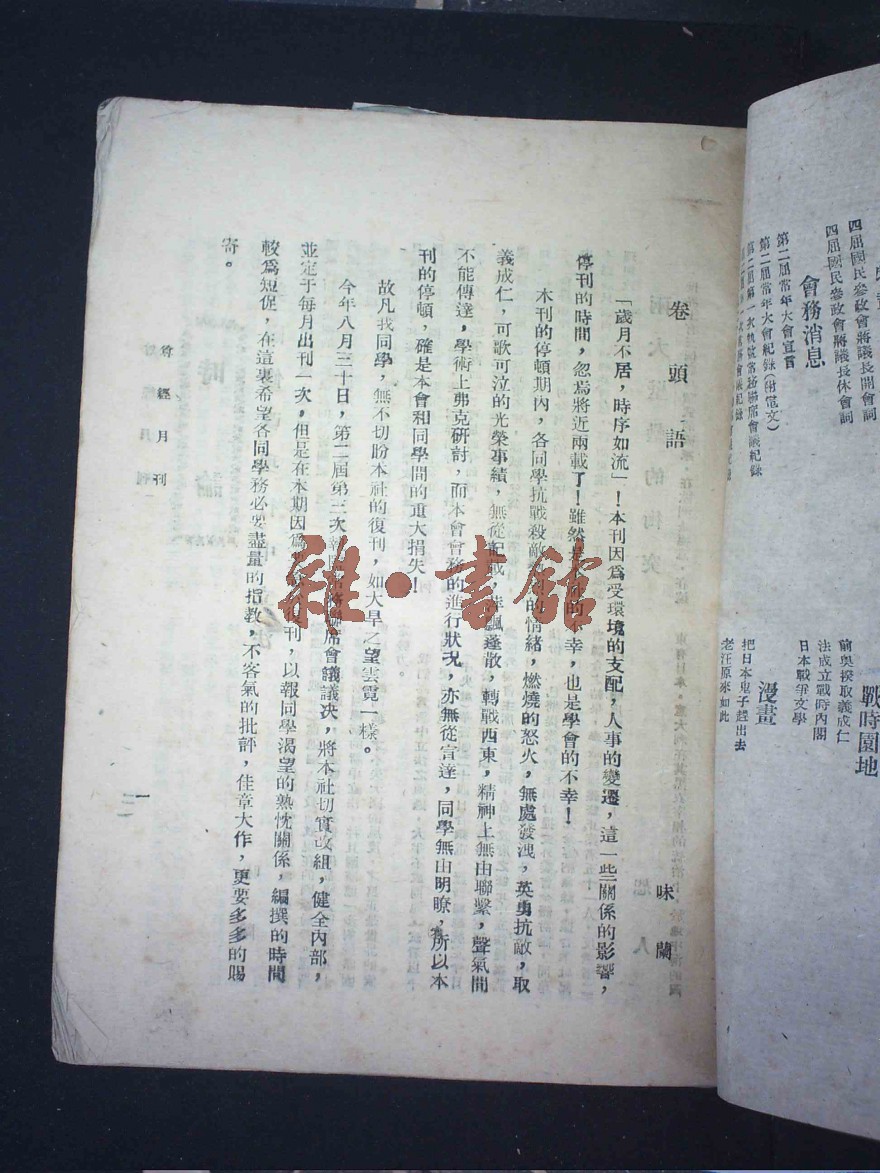 四屆國民參政會蔣議長開會詞
四屆國民參政會蔣議長休會詞
會務消息
第二屆常年大會宣言
第二屆常年大會紀錄(附電文)
戰時園地
前奥揆取義成仁
法成立戰時內閣
日本戰爭文學
漫畫
把日本鬼子趕出去
老汪原來如此
卷頭語
味蘭
「歲月不居,時序如流」!本刊因爲受環境的支配,人事的變遷,這一些關係的影響,
停刊的時間,忽焉將近兩載了!雖然是 的不幸,也是學會的不幸!
本刊的停頓期內,各同學抗戰殺敵 的情緒,燃燒的怒火,無處發洩,英勇抗敵,取
義成仁,可歌可泣的光榮事績,無從記載, 飄蓬散,轉戰西東,精神上無由聯繫,聲氣間
不能傳達,學術上弗克研討,而本會會務的進行狀况,亦無從宣達,同學無由明瞭,所以本
刊的停頓,確是本會和同學間的重大損失!
故凡我同學,無不切盼本社的復刊,如大旱之望雲霓一樣。
今年八月三十日,第二屆第三次 聯席會議議决,將本社切實改組,健全內部,
並定于每月出刊一次,但是在本期因爲 復刊,以報同學渴望的熱忱關係,編撰的時間
較爲短促,在這裏希望各同學務必要盡量的指教,不客氣的批評,佳章大作,更要多多的賜
寄。
經月刊
一
雜·書館